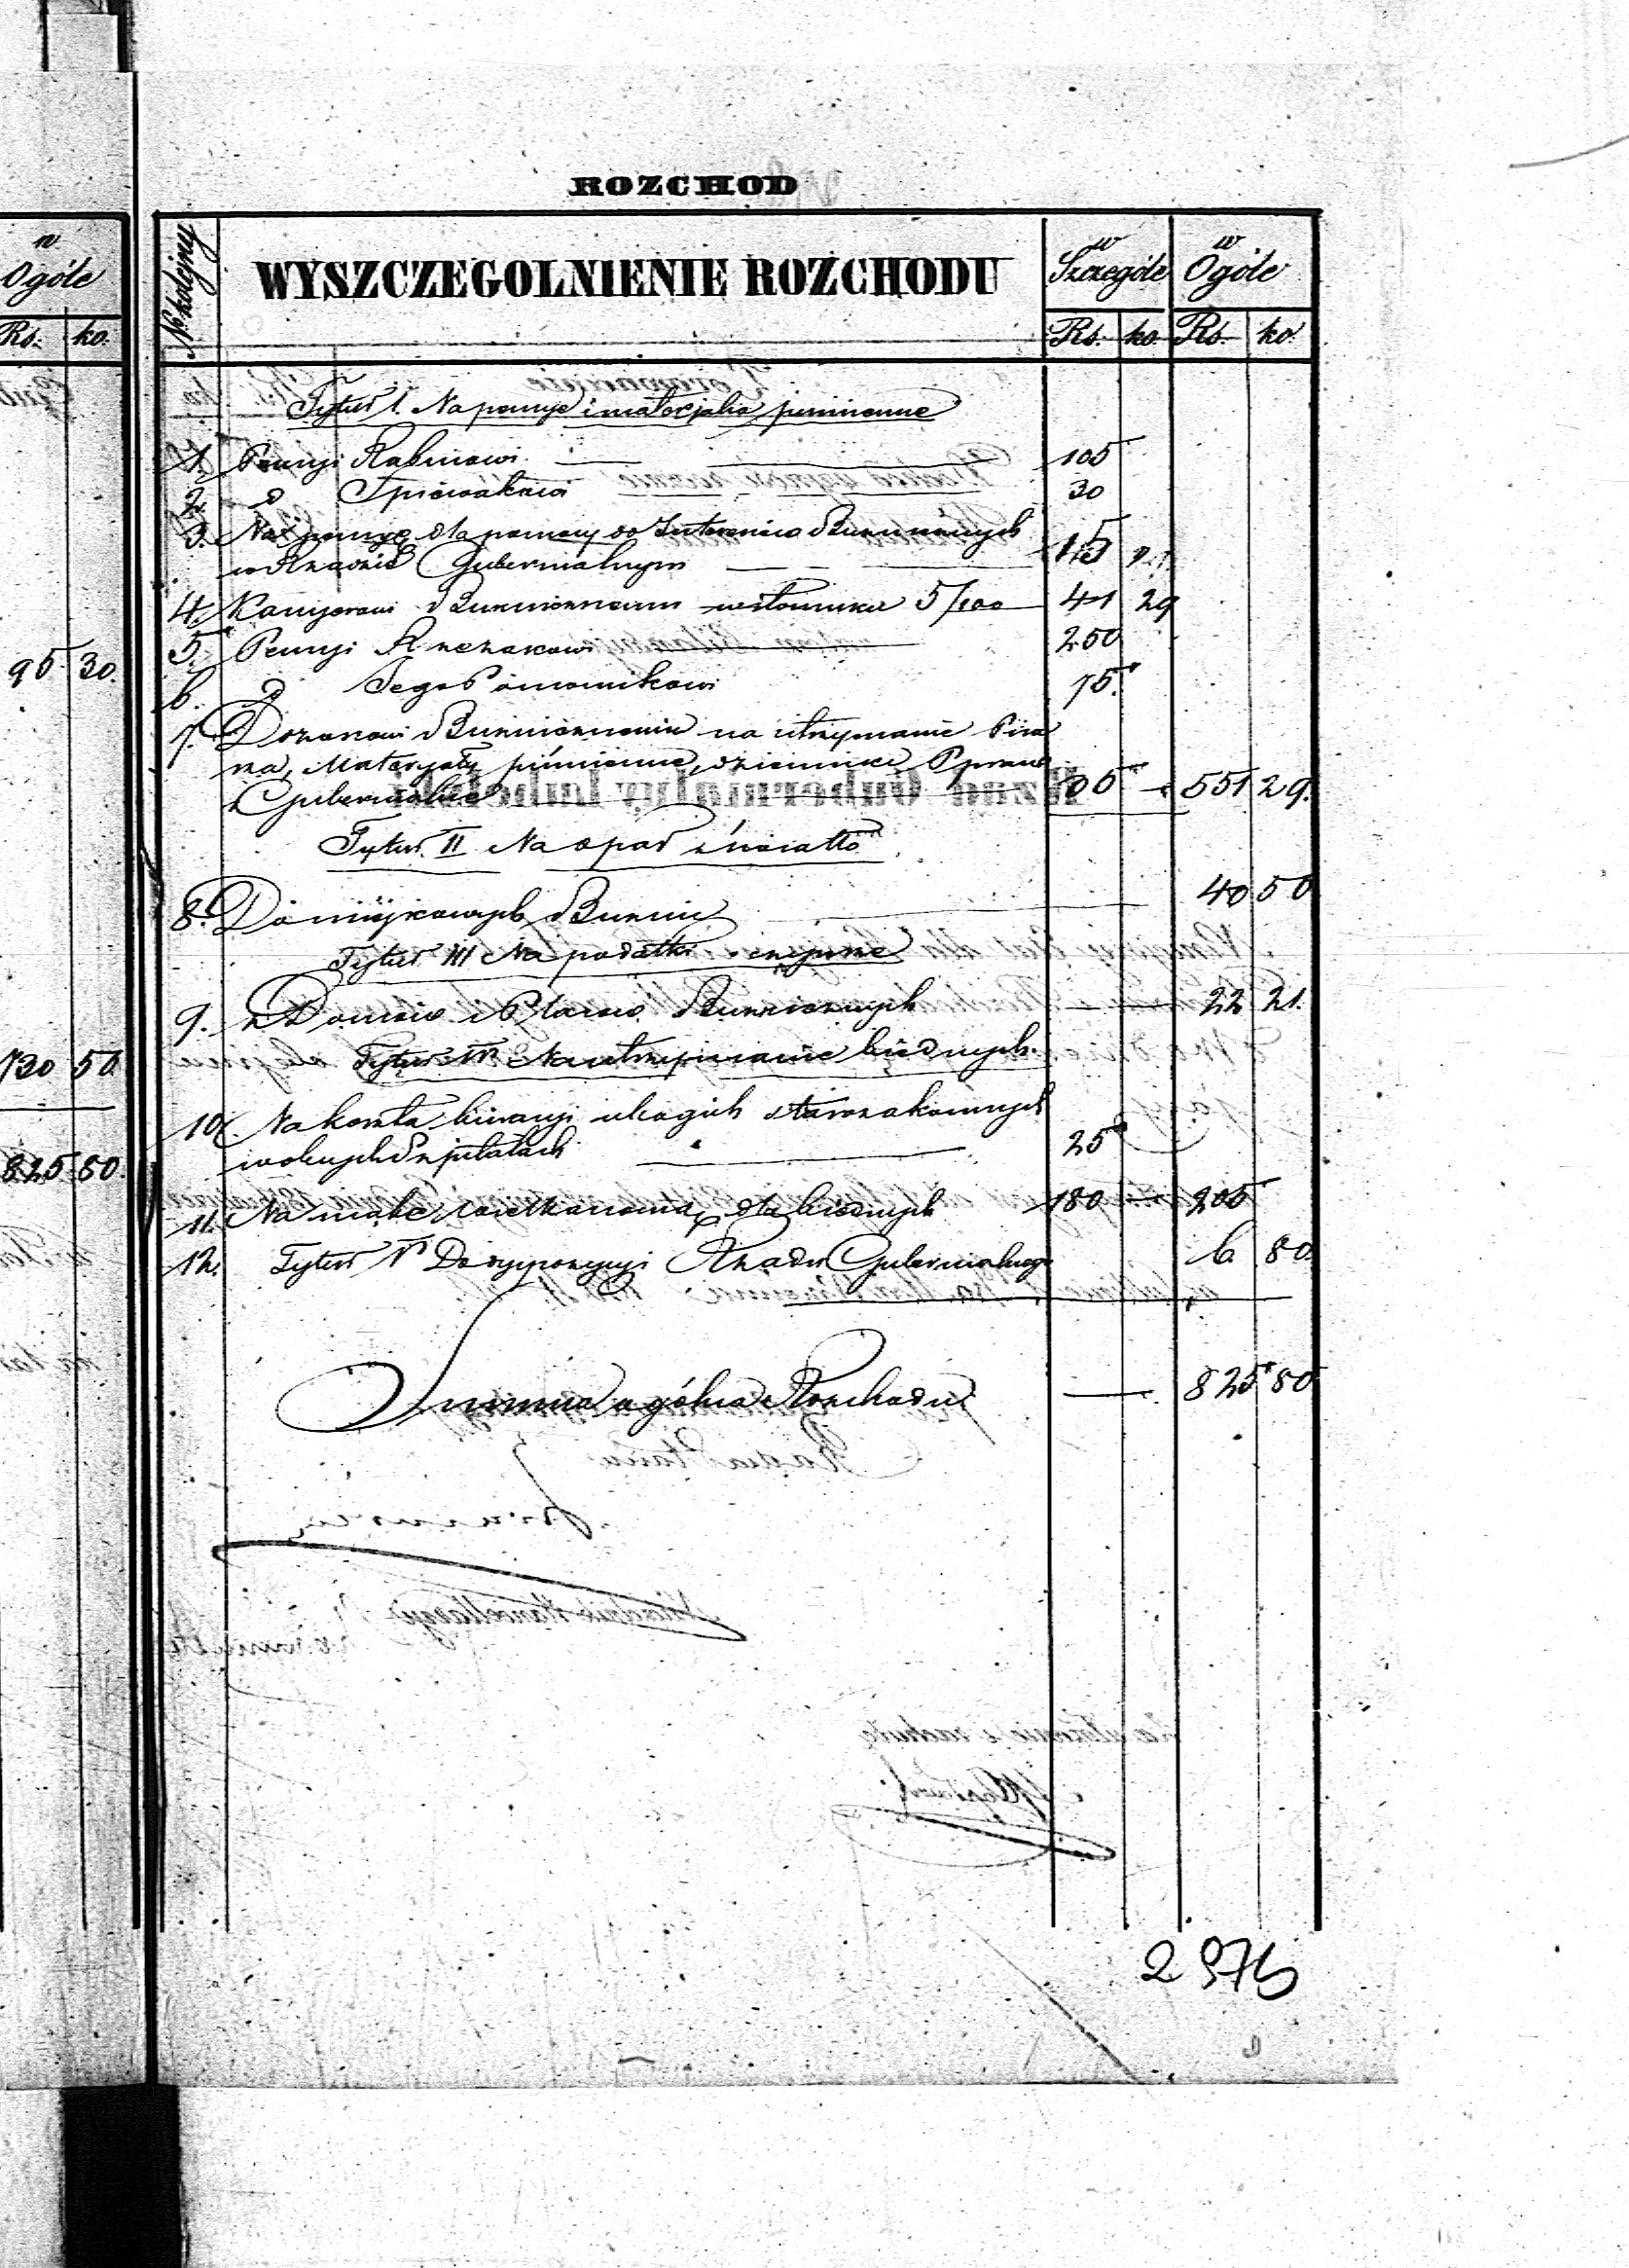 ROZCHOD
w Ogóle
Rs. ko.
№ kolejny
WYSZCZEGOLNIENIE ROZCHODU
w Szczególe
w Ogóle
Rs. ko. Rs. ko.
Tytuł I. Na pensye i materjały piśmienne
1. Pensyi Rabinowi 105
2. d Spiewakowi 30
3. Na pensyę dla pomocy do Interesów Bużnicznych
w Rządzie Gubernialnym 15
4. Kassyerowi Bużnicznemu w stosunku 5/100 41 29
5. Pensyi Rzezakowi 250
95 30.
6. d Jego Pomocnikowi 75.
7. Dozorowi Bużnicznemu na utrzymanie Pisa
rza, Materyały piśmienne, dzienniki Praw
i Gubernialne 551 29.
Tytuł II Na opał i światło
8. Domów i Bużnic 40 50
Tytuł III Na podatki i czynsze
9. z Domów i Placów Bużnicznych 22 21.
130 50
Tytuł IV Na utrzymanie biednych
10. Na koszta kuracyi ubogich starozakonnych
w obcych Szpitalach 25
825 80.
11. Na mace wielkanocną dla biednych 180 — 205
12. Tytuł V Do dyspozycyi Rządu Gubernialnego 6. 80.
Summa ogólna Rozchodu — 825 80
2976